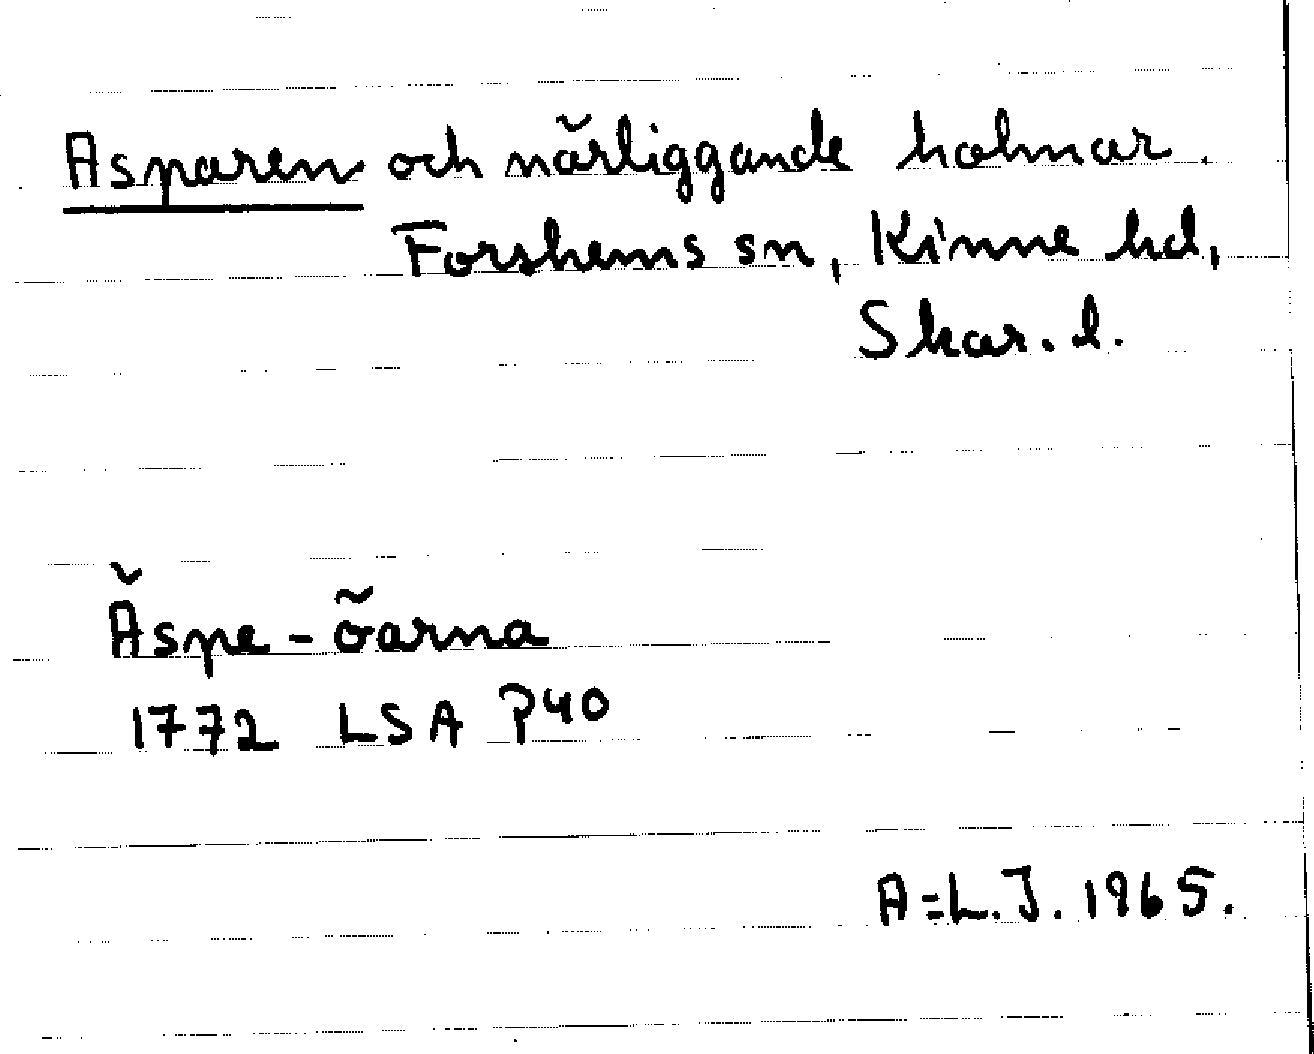 Asparen och närliggande holmar.
Forshems sn, Kinne hd,
Skar. l.
Äspe-öarna
1772 LSA P40
A=L.J. 1965.